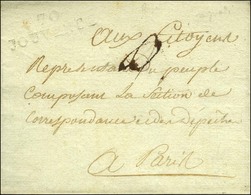 70
JOUY
Aux Citoyens
Representans du peuple
Composant La Section de
Correspondance et des depeche
A Paris